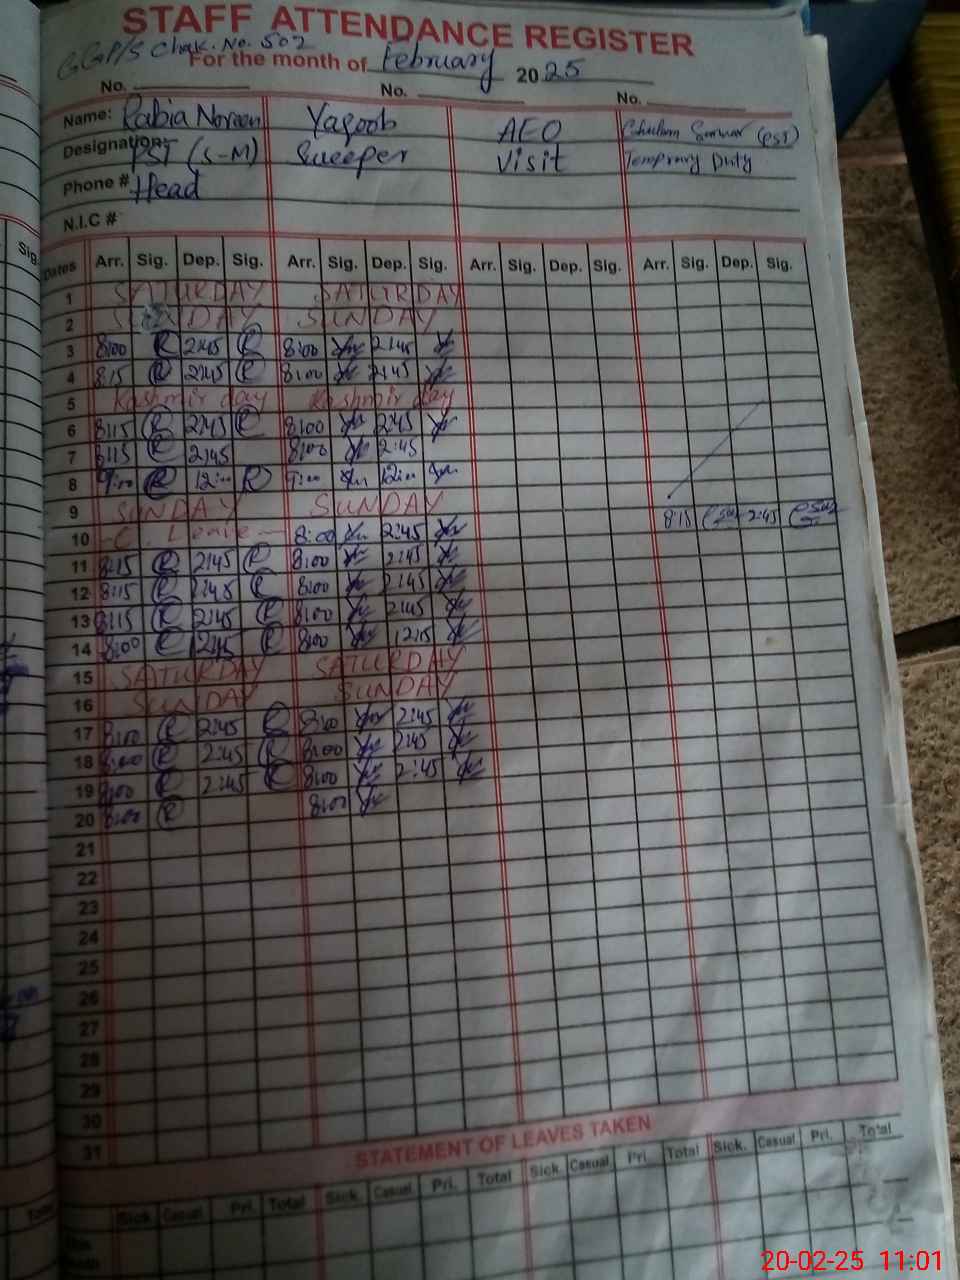 STAFF ATTENDANCE REGISTER
GGP/S Chak. No. 502
For the month of February 2025
No. No. No.
Name: Rabia Noreen Yaqoob AEO
Designation: PST (S-M) Sweeper Visit Temprary Duty
Phone # Head
N.I.C #
Sig.
Dates Arr. Sig. Dep. Sig. Arr. Sig. Dep. Sig. Arr. Sig. Dep. Sig. Arr. Sig. Dep. Sig.
1 SATURDAY SATURDAY
2 SUNDAY SUNDAY
3 8:00 R 2:45 R 8:00 2:45
4 8:15 R 2:45 R 8:00 2:45
5 Kashmir day Kashmir day
6 8:15 R 2:45 R 8:00 2:45
7 8:15 R 2:45 8:00 2:45
8 9:00 R 12:00 R 9:00 12:00
9 SUNDAY SUNDAY
10 C. Leave 8:00 2:45 8:15 2:45
11 8:15 R 2:45 R 8:00 2:45
12 8:15 R 2:45 R 8:00 2:45
13 8:15 R 2:45 R 8:00 2:45
14 8:00 R 12:15 R 8:00 12:15
15 SATURDAY SATURDAY
16 SUNDAY SUNDAY
17 8:00 R 2:45 R 8:00 2:45
18 8:00 R 2:45 R 8:00 2:45
19 8:00 R 2:45 R 8:00 2:45
20 8:00 R 8:00
21
22
23
24
25
26
27
28
29
30
31
STATEMENT OF LEAVES TAKEN
Sick Casual Pri. Total Sick. Casual Pri. Total Sick. Casual Pri. Total Sick. Casual Pri. Total
Total
This
Month
20-02-25 11:01